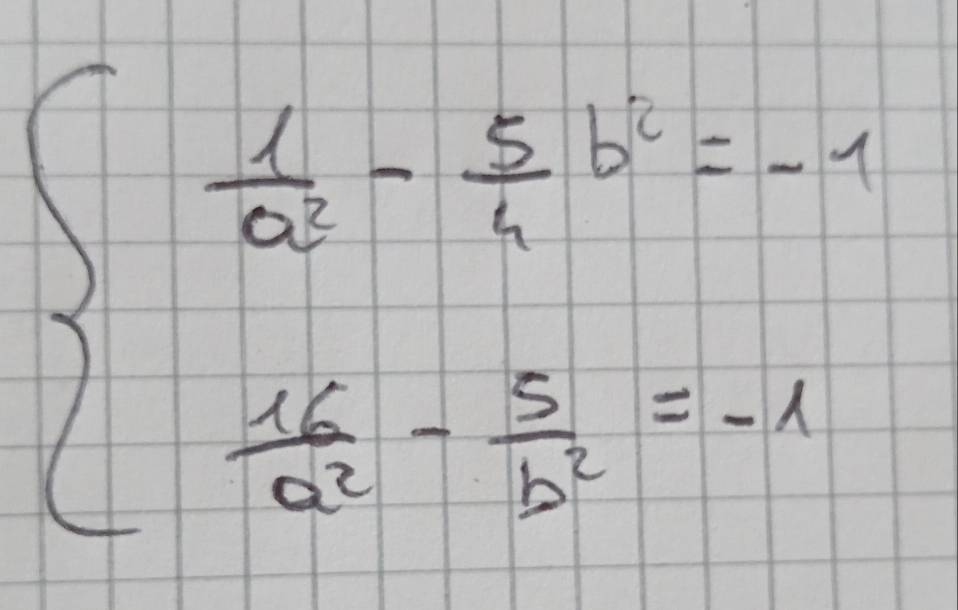 1/a² - 5/4 b² = -1
16/a² - 5/b² = -1